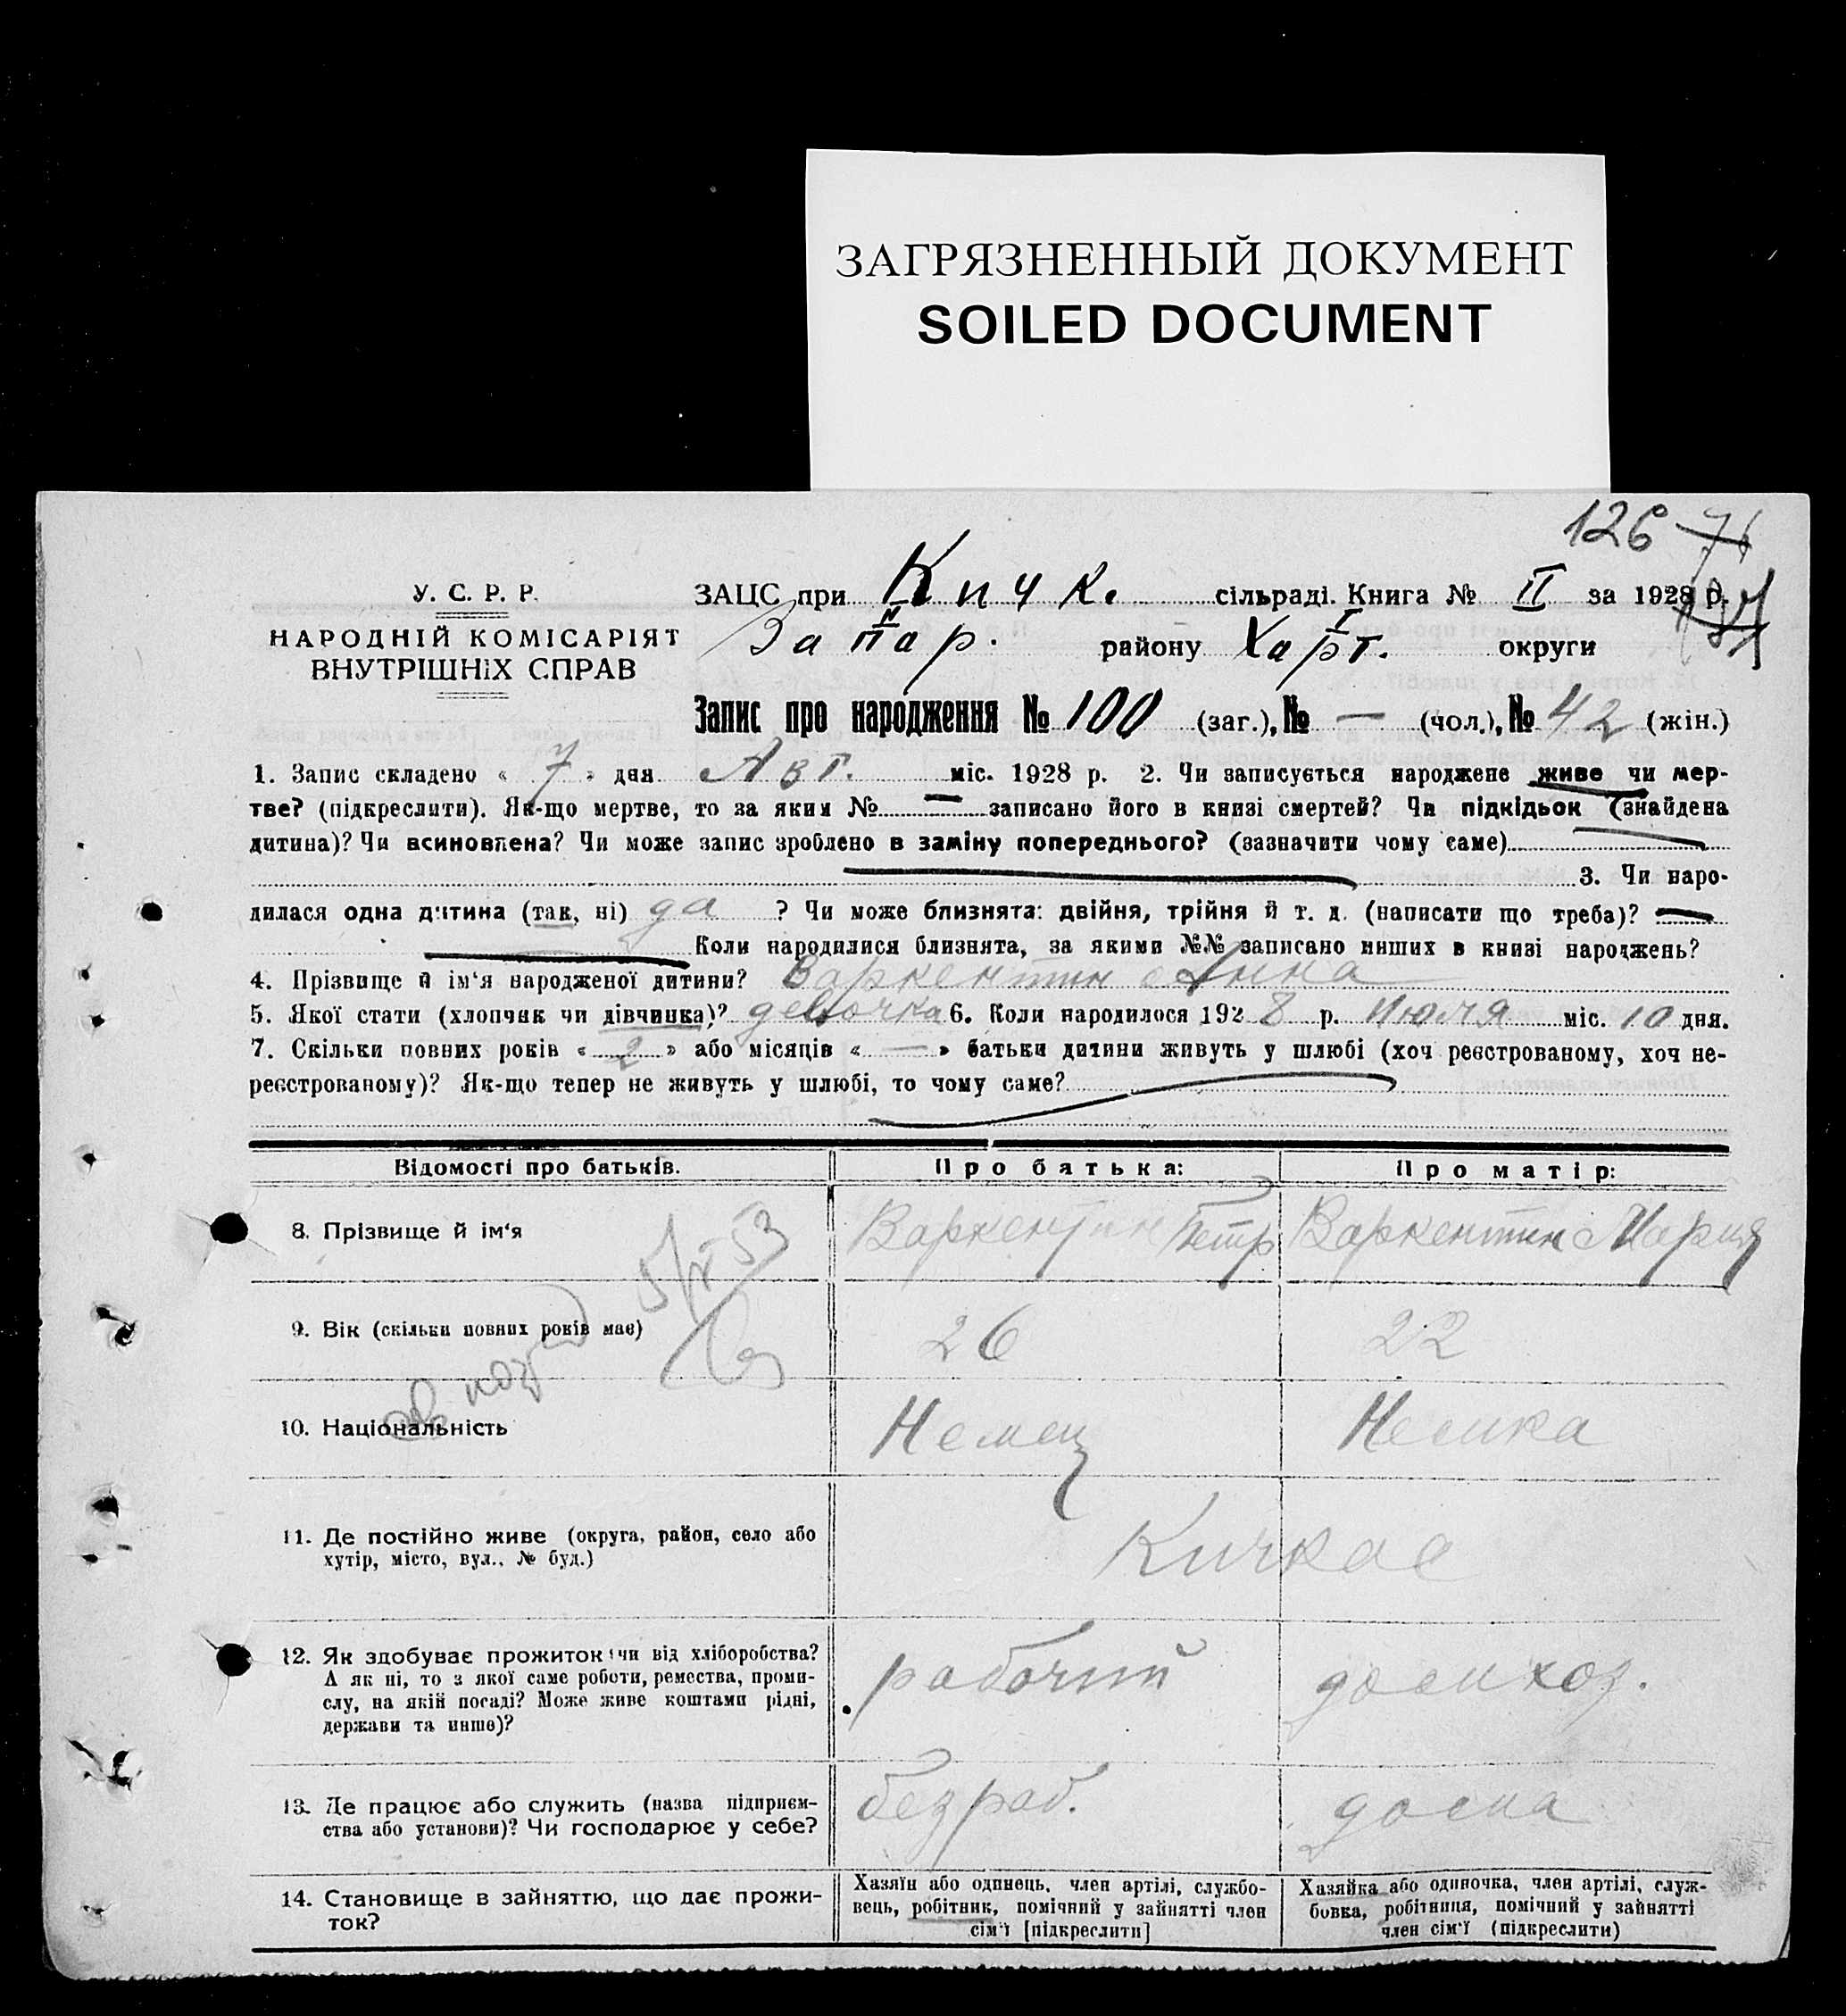 ЗАГРЯЗНЕННЫЙ ДОКУМЕНТ
SOILED DOCUMENT
126 71
У. С. Р. Р.
НАРОДНІЙ КОМІСАРІЯТ
ВНУТРІШНІХ СПРАВ
ЗАЦС при Кичк. сільраді. Книга № II за 1928 р.
Запор. району Харт. округи
Запис про народження № 100 (заг.), № — (чол.), № 42 (жін.)
1. Запис складено « 7 » дня Авг. міс. 1928 р. 2. Чи записується народжене живе чи мер-
тве? (підкреслити). Як-що мертве, то за яким № — записано його в книзі смертей? Чи підкідьок (знайдена
дитина)? Чи всиновлена? Чи може запис зроблено в заміну попереднього? (зазначити чому саме)
3. Чи наро-
дилася одна дитина (так, ні) да ? Чи може близнята: двійня, трійня й т. д. (написати що треба)? —
Коли народилися близнята, за якими №№ записано инших в книзі народжень?
4. Прізвище й ім'я народженої дитини? Варкентин Анна
5. Якої стати (хлопчик чи дівчинка)? девочка 6. Коли народилося 1928 р. Июля міс. 10 дня.
7. Скільки повних років « 2 » або місяців « — » батьки дитини живуть у шлюбі (хоч реєстрованому, хоч не-
реєстрованому)? Як-що тепер не живуть у шлюбі, то чому саме?
Відомості про батьків. Про батька: Про матір:
8. Прізвище й ім'я Варкентин Петр Варкентин Мария
5/X 53
9. Вік (скільки повних років має) 26 22
10. Національність Немец Немка
11. Де постійно живе (округа, район, село або
хутір, місто, вул., № буд.) Кичкас
12. Як здобуває прожиток (чи від хліборобства?
А як ні, то з якої саме роботи, ремества, проми-
слу, на якій посаді? Може живе коштами рідні,
держави та инше)? рабочий домхоз.
13. Де працює або служить (назва підприєм-
ства або установи)? Чи господарює у себе? безраб. дома
14. Становище в зайняттю, що дає прожи-
ток?
Хазяїн або одинець, член артілі, службо-
вець, робітник, помічний у зайнятті член
сім'ї [підкреслити]
Хазяйка або одиночка, член артілі, служ-
бовка, робітниця, помічний у зайнятті
член сім'ї (підкреслити)